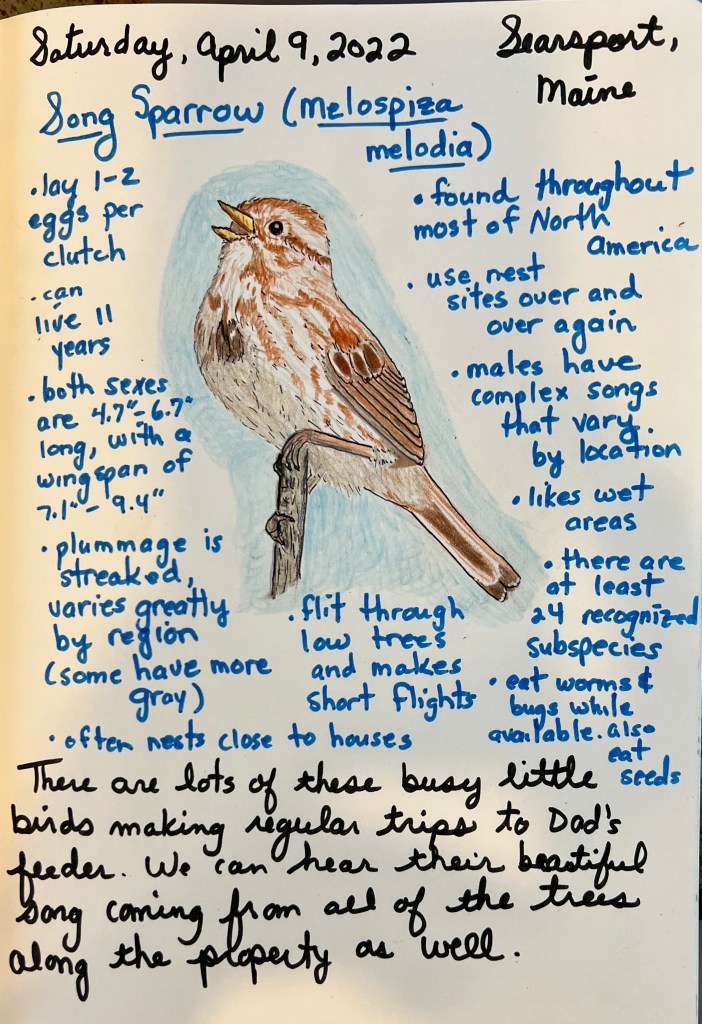 Saturday, April 9, 2022
Searsport,
Maine
Song Sparrow (Melospiza
melodia)
• lay 1-2
eggs per
clutch
• can
live 11
years
• both sexes
are 4.7"-6.7"
long, with a
wingspan of
7.1"- 9.4"
• plummage is
streaked,
varies greatly
by region
(some have more
gray)
• often nests close to houses
• flit through
low trees
and makes
short flights
• found throughout
most of North
America
• use nest
sites over and
over again
• males have
complex songs
that vary
by location
• likes wet
areas
• there are
at least
24 recognized
subspecies
• eat worms &
bugs while
available. also
eat
seeds
There are lots of these busy little
birds making regular trips to Dad's
feeder. We can hear their beautiful
song coming from all of the trees
along the property as well.